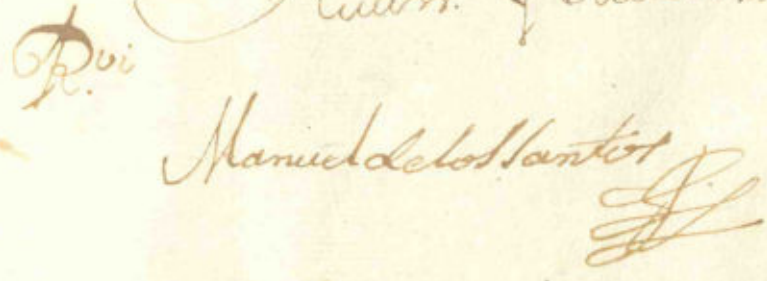 Rvi
Manuel de los Santos